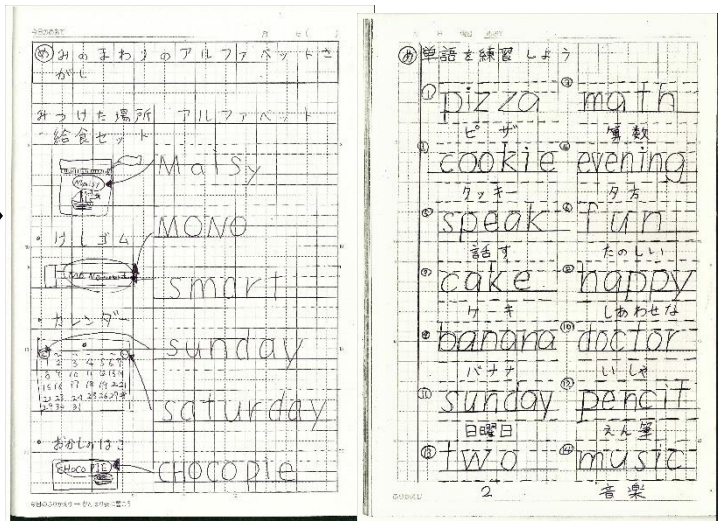 今日のめあて 月 日( )
め みのまわりのアルファベットさ
がし
みつけた場所 アルファベット
給食セット
Maisy
・けしゴム
MONO
smart
・カレンダー
sunday
saturday
・おかしのはこ
CHOCO PIE
CHOCOPIE
め 単語を練習しよう
① pizza
ピザ
② math
算数
③ cookie
クッキー
④ evening
夕方
⑤ speak
話す
⑥ fun
たのしい
⑦ cake
ケーキ
⑧ happy
しあわせな
⑨ banana
バナナ
⑩ doctor
いしゃ
⑪ sunday
日曜日
⑫ pencil
えん筆
⑬ two
2
⑭ music
音楽